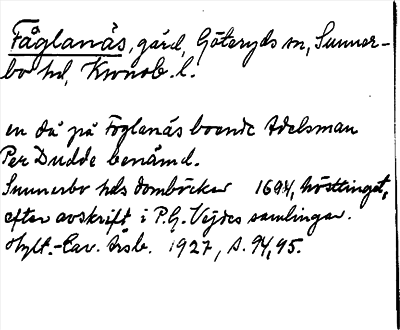 Fåglanäs, gård, Göteryds sn, Sunner-
bo hd, Kronob. l.
en då på Foglanäs boende Adelsman
Per Dudde benämd.
Sunnerbo hds domböcker 1694, hösttinget,
efter avskrift i P.G. Vejdes samlingar.
Hylt.-Cav. Årsb. 1927, s. 94, 95.